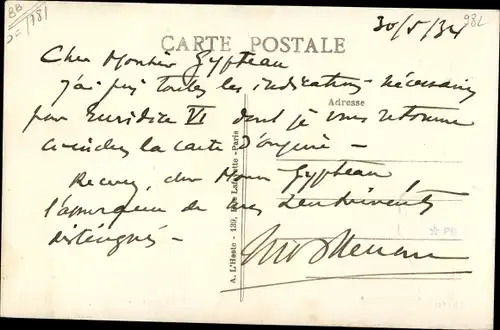 30/5/34
CARTE POSTALE
Cher Monsieur Gypteau
j'ai pris toutes les indications nécessaires
Adresse
pour Euridice VI dont je vous retourne
ci-inclus la carte d'origine -
Recevez, cher Monsieur Gypteau
l'assurance de mes sentiments
distingués -
A. L'Hoste - 139, Rue Lafayette - Paris